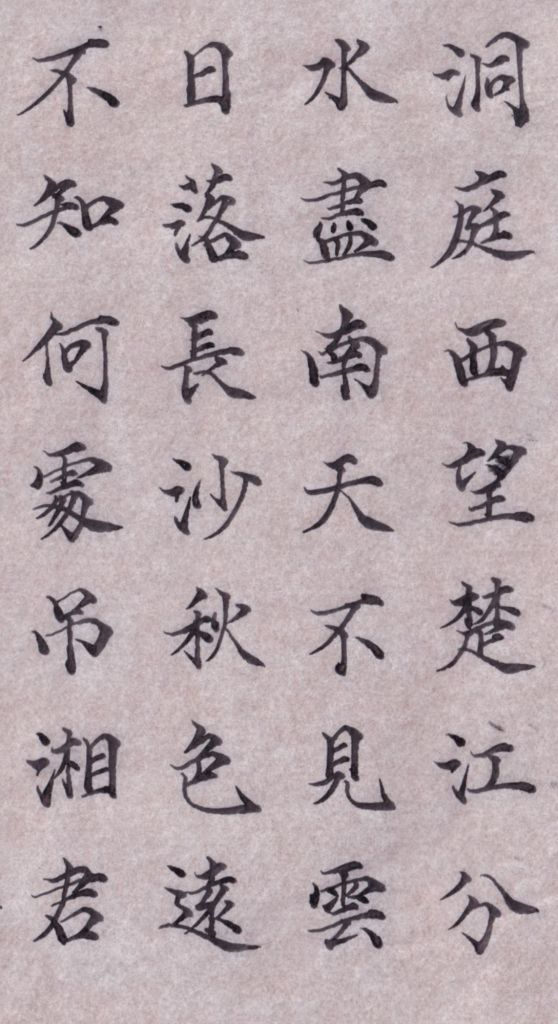 洞庭西望楚江分
水盡南天不見雲
日落長沙秋色遠
不知何處吊湘君